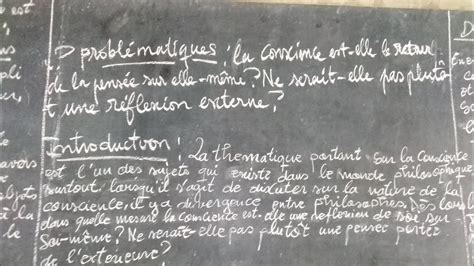 problématiques : la conscience est-elle le retour
de la pensée sur elle-même ? Ne serait-elle pas plutôt
une réflexion externe ?
Introduction : La thematique portant sur la Conscience
est l'un des sujets qui existe dans le monde philosophique
surtout lorsqu'il s'agit de discuter sur la nature de la
conscience, il y a divergence entre philosophes, Dès lors
dans quelle mesure la conscience est-elle une reflexion de soi sur
Soi-même ? Ne serait-elle pas plutôt une pensée portée
de l'exterieure ?